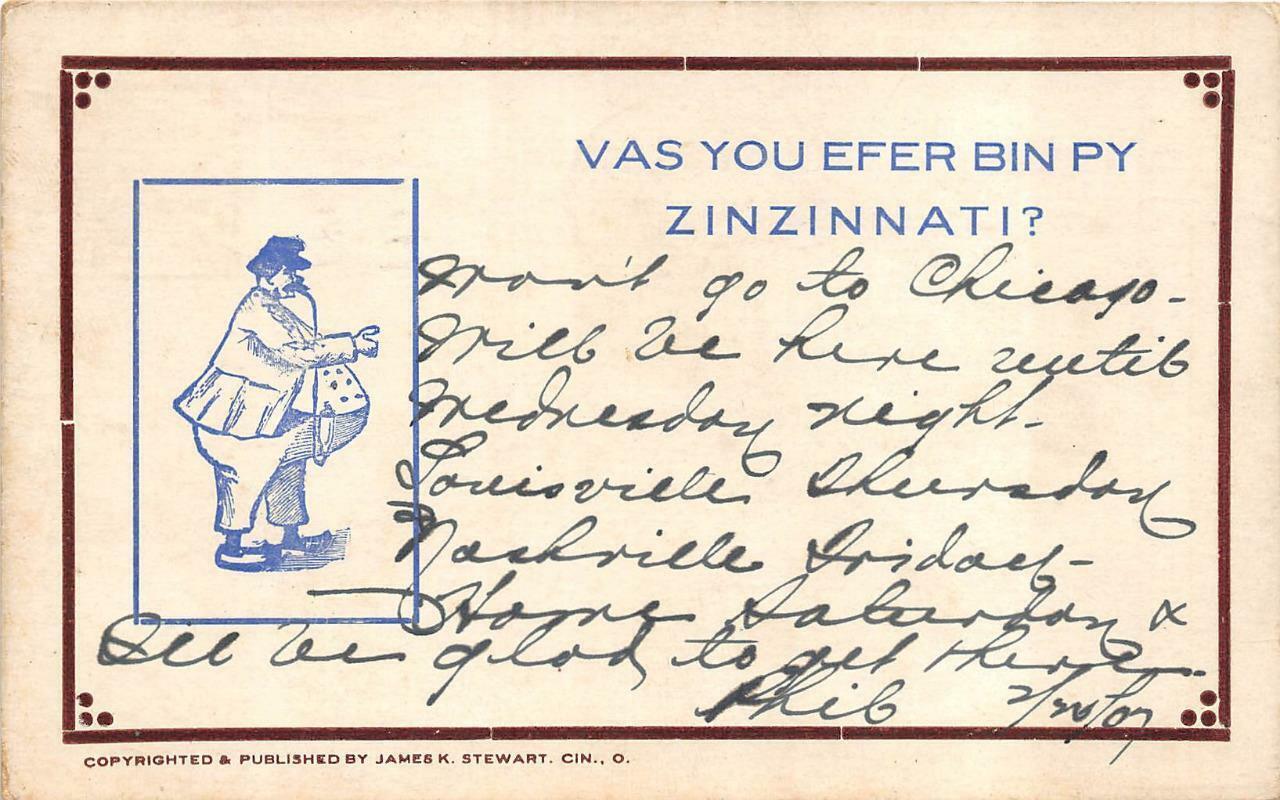 VAS YOU EFER BIN PY
ZINZINNATI?
Won't go to Chicago-
Will be here until
Wednesday night-
Louisville Thursday
Nashville Friday-
Home Saturday &
I'll be glad to get there.
Phil 2/20/07
COPYRIGHTED & PUBLISHED BY JAMES K. STEWART. CIN., O.